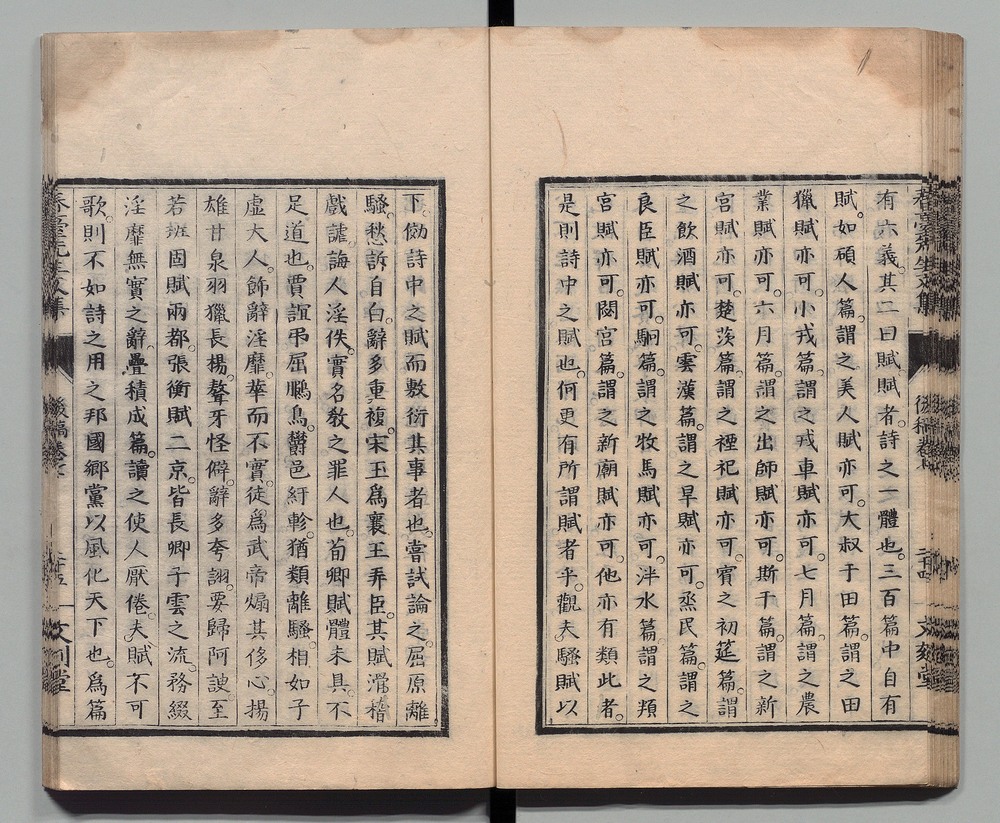 有六義。其二曰賦。賦者詩之一體也。三百篇中自有
賦。如碩人篇。謂之美人賦亦可。大叔于田篇。謂之田
獵賦亦可。小戎篇。謂之戎車賦亦可。七月篇。謂之農
業賦亦可。六月篇。謂之出師賦亦可。斯干篇。謂之新
宮賦亦可。楚茨篇。謂之禋祀賦亦可。賓之初筵篇。謂
之飲酒賦亦可。雲漢篇。謂之旱賦亦可。烝民篇。謂之
良臣賦亦可。駉篇。謂之牧馬賦亦可。泮水篇。謂之頖
宮賦亦可。閟宮篇。謂之新廟賦亦可。他亦有類此者。
是則詩中之賦也。何更有所謂賦者乎。觀夫騷賦以
下。傚詩中之賦。而敷衍其事者也。嘗試論之。屈原離
騷。愁訴自白。辭多重複。宋玉爲襄王弄臣。其賦滑稽
戲謔。誨人淫佚。實名敎之罪人也。荀卿賦體未具。不
足道也。賈誼弔屈鵩鳥。欝邑紆軫。猶類離騷。相如子
虛大人。飾辭淫靡。華而不實。徒爲武帝煽其侈心。揚
雄甘泉羽獵長楊。聱牙怪僻。辭多夸詡。要歸阿諛。至
若班固賦兩都。張衡賦二京。皆長卿子雲之流。務綴
淫靡無實之辭。疊積成篇。讀之使人厭倦。夫賦不可
歌。則不如詩之用之邦國鄉黨以風化天下也。爲篇
春臺先生文集
後稿卷